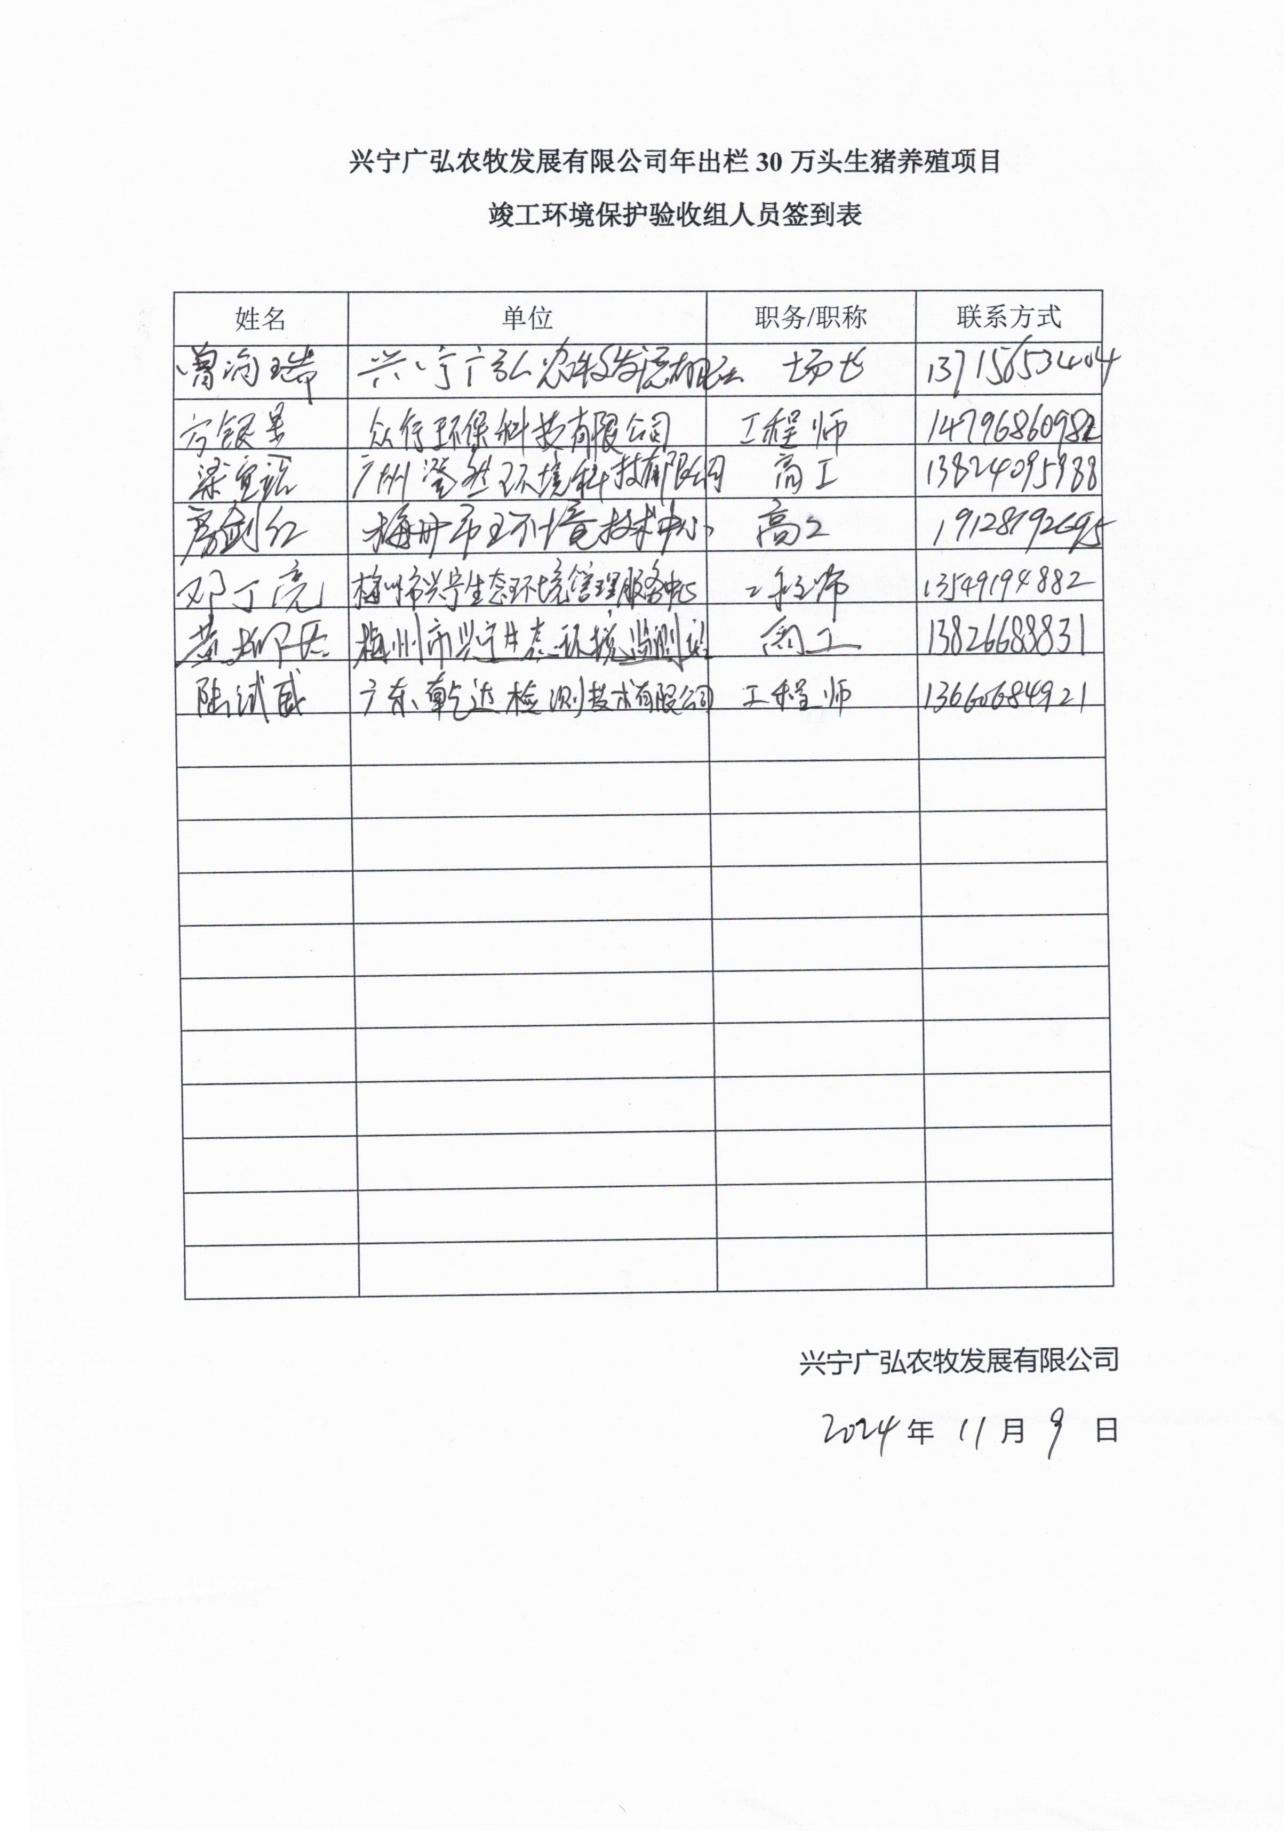 兴宁广弘农牧发展有限公司年出栏 30 万头生猪养殖项目
竣工环境保护验收组人员签到表
姓名 单位 职务/职称 联系方式
兴宁广弘农牧发展有限公司 场长 13715653404
众行环保科技有限公司 工程师 14796860982
广州滢然环境科技有限公司 高工 13824095988
房剑红 梅州市环境技术中心 高工 19128192695
邓丁亮 梅州市兴宁生态环境管理服务中心 工程师 13549194882
梅州市兴宁生态环境监测站 高工 13826688831
陆试威 广东乾达检测技术有限公司 工程师 13660684921
兴宁广弘农牧发展有限公司
2024 年 11 月 9 日